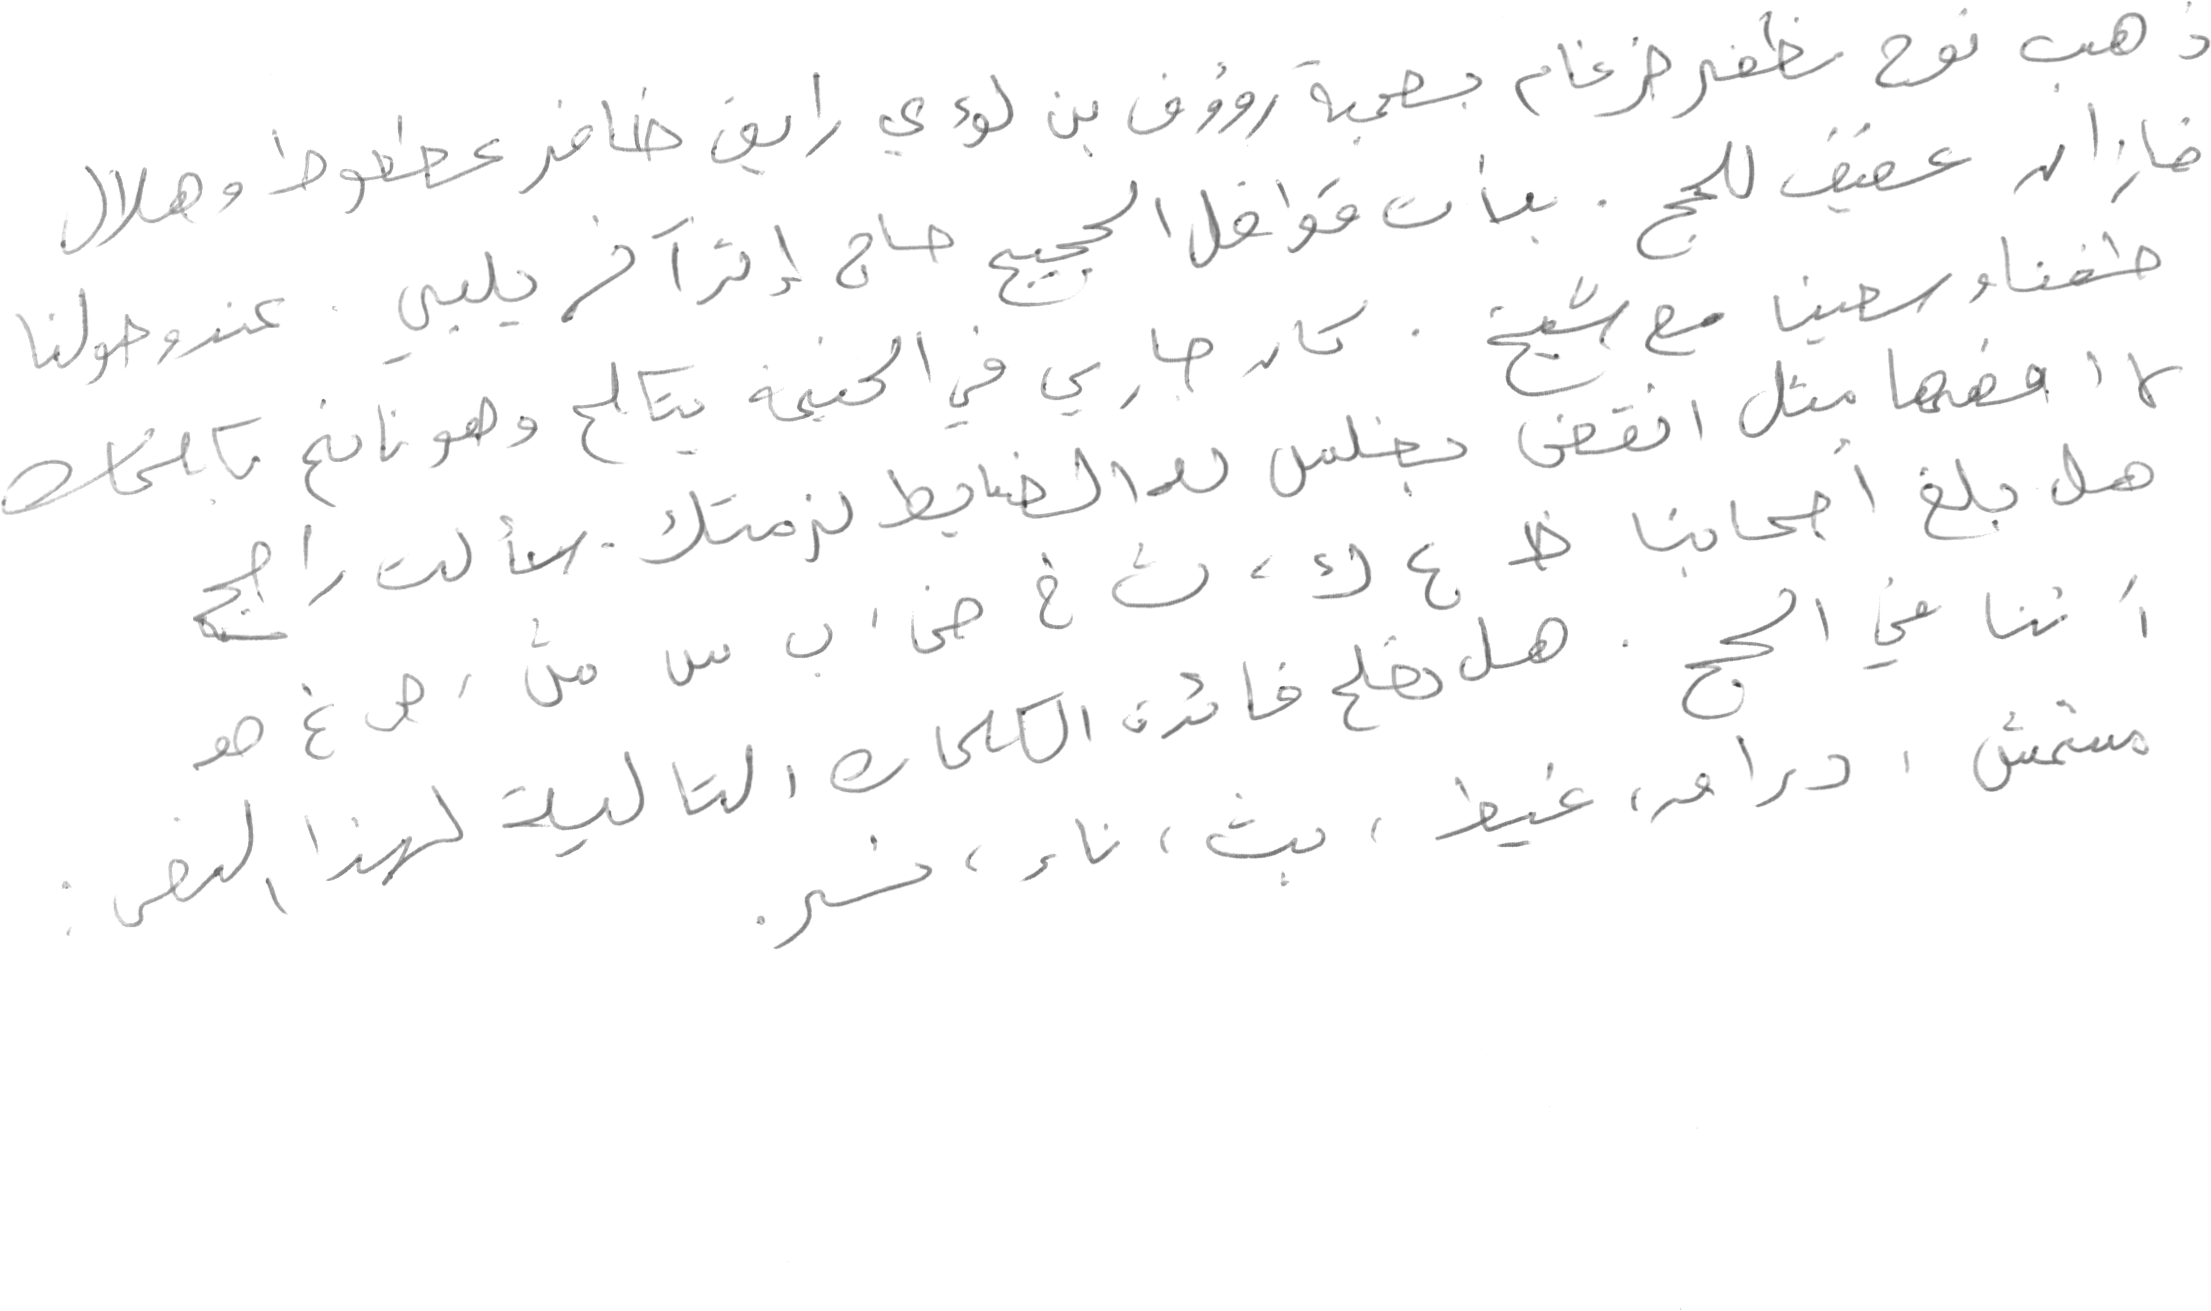 ذهب نوح مظفر ضرغام بصحبة رؤوف بن لؤي رايق ظافر عطعوط وهلال
فازان عفيف للحج . بدأت قوافل الحجيج حاج إثر آخر يلبي . عند وصولنا
طفنا وسعينا مع شيخ . كان جاري في الخيمة يتكلم وهو نائم بكلمات
لا أفهمها مثل انقض بجلس لدا الضابط لزمتك . سألت راجح
هل بلغ أصحابنا ظ ع ك ، ث غ ض ، ب س ش ، ص غ هو
أننا في الحج . هل تصلح فائدة الكلمات التالية لهذا النص :
مستمش ، دراهم ، غيط ، بث ، ناء ، نسر .